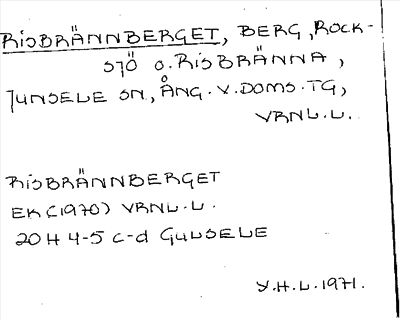 RISBRÄNNBERGET, BERG, ROCK-
SJÖ O. RISBRÄNNA,
JUNSELE SN, ÅNG. V. DOMS. TG,
VRNL.L.
RISBRÄNNBERGET
EK (1970) VRNL.L.
20 H 4-5 c-d GULSELE
Y.H.L. 1971.